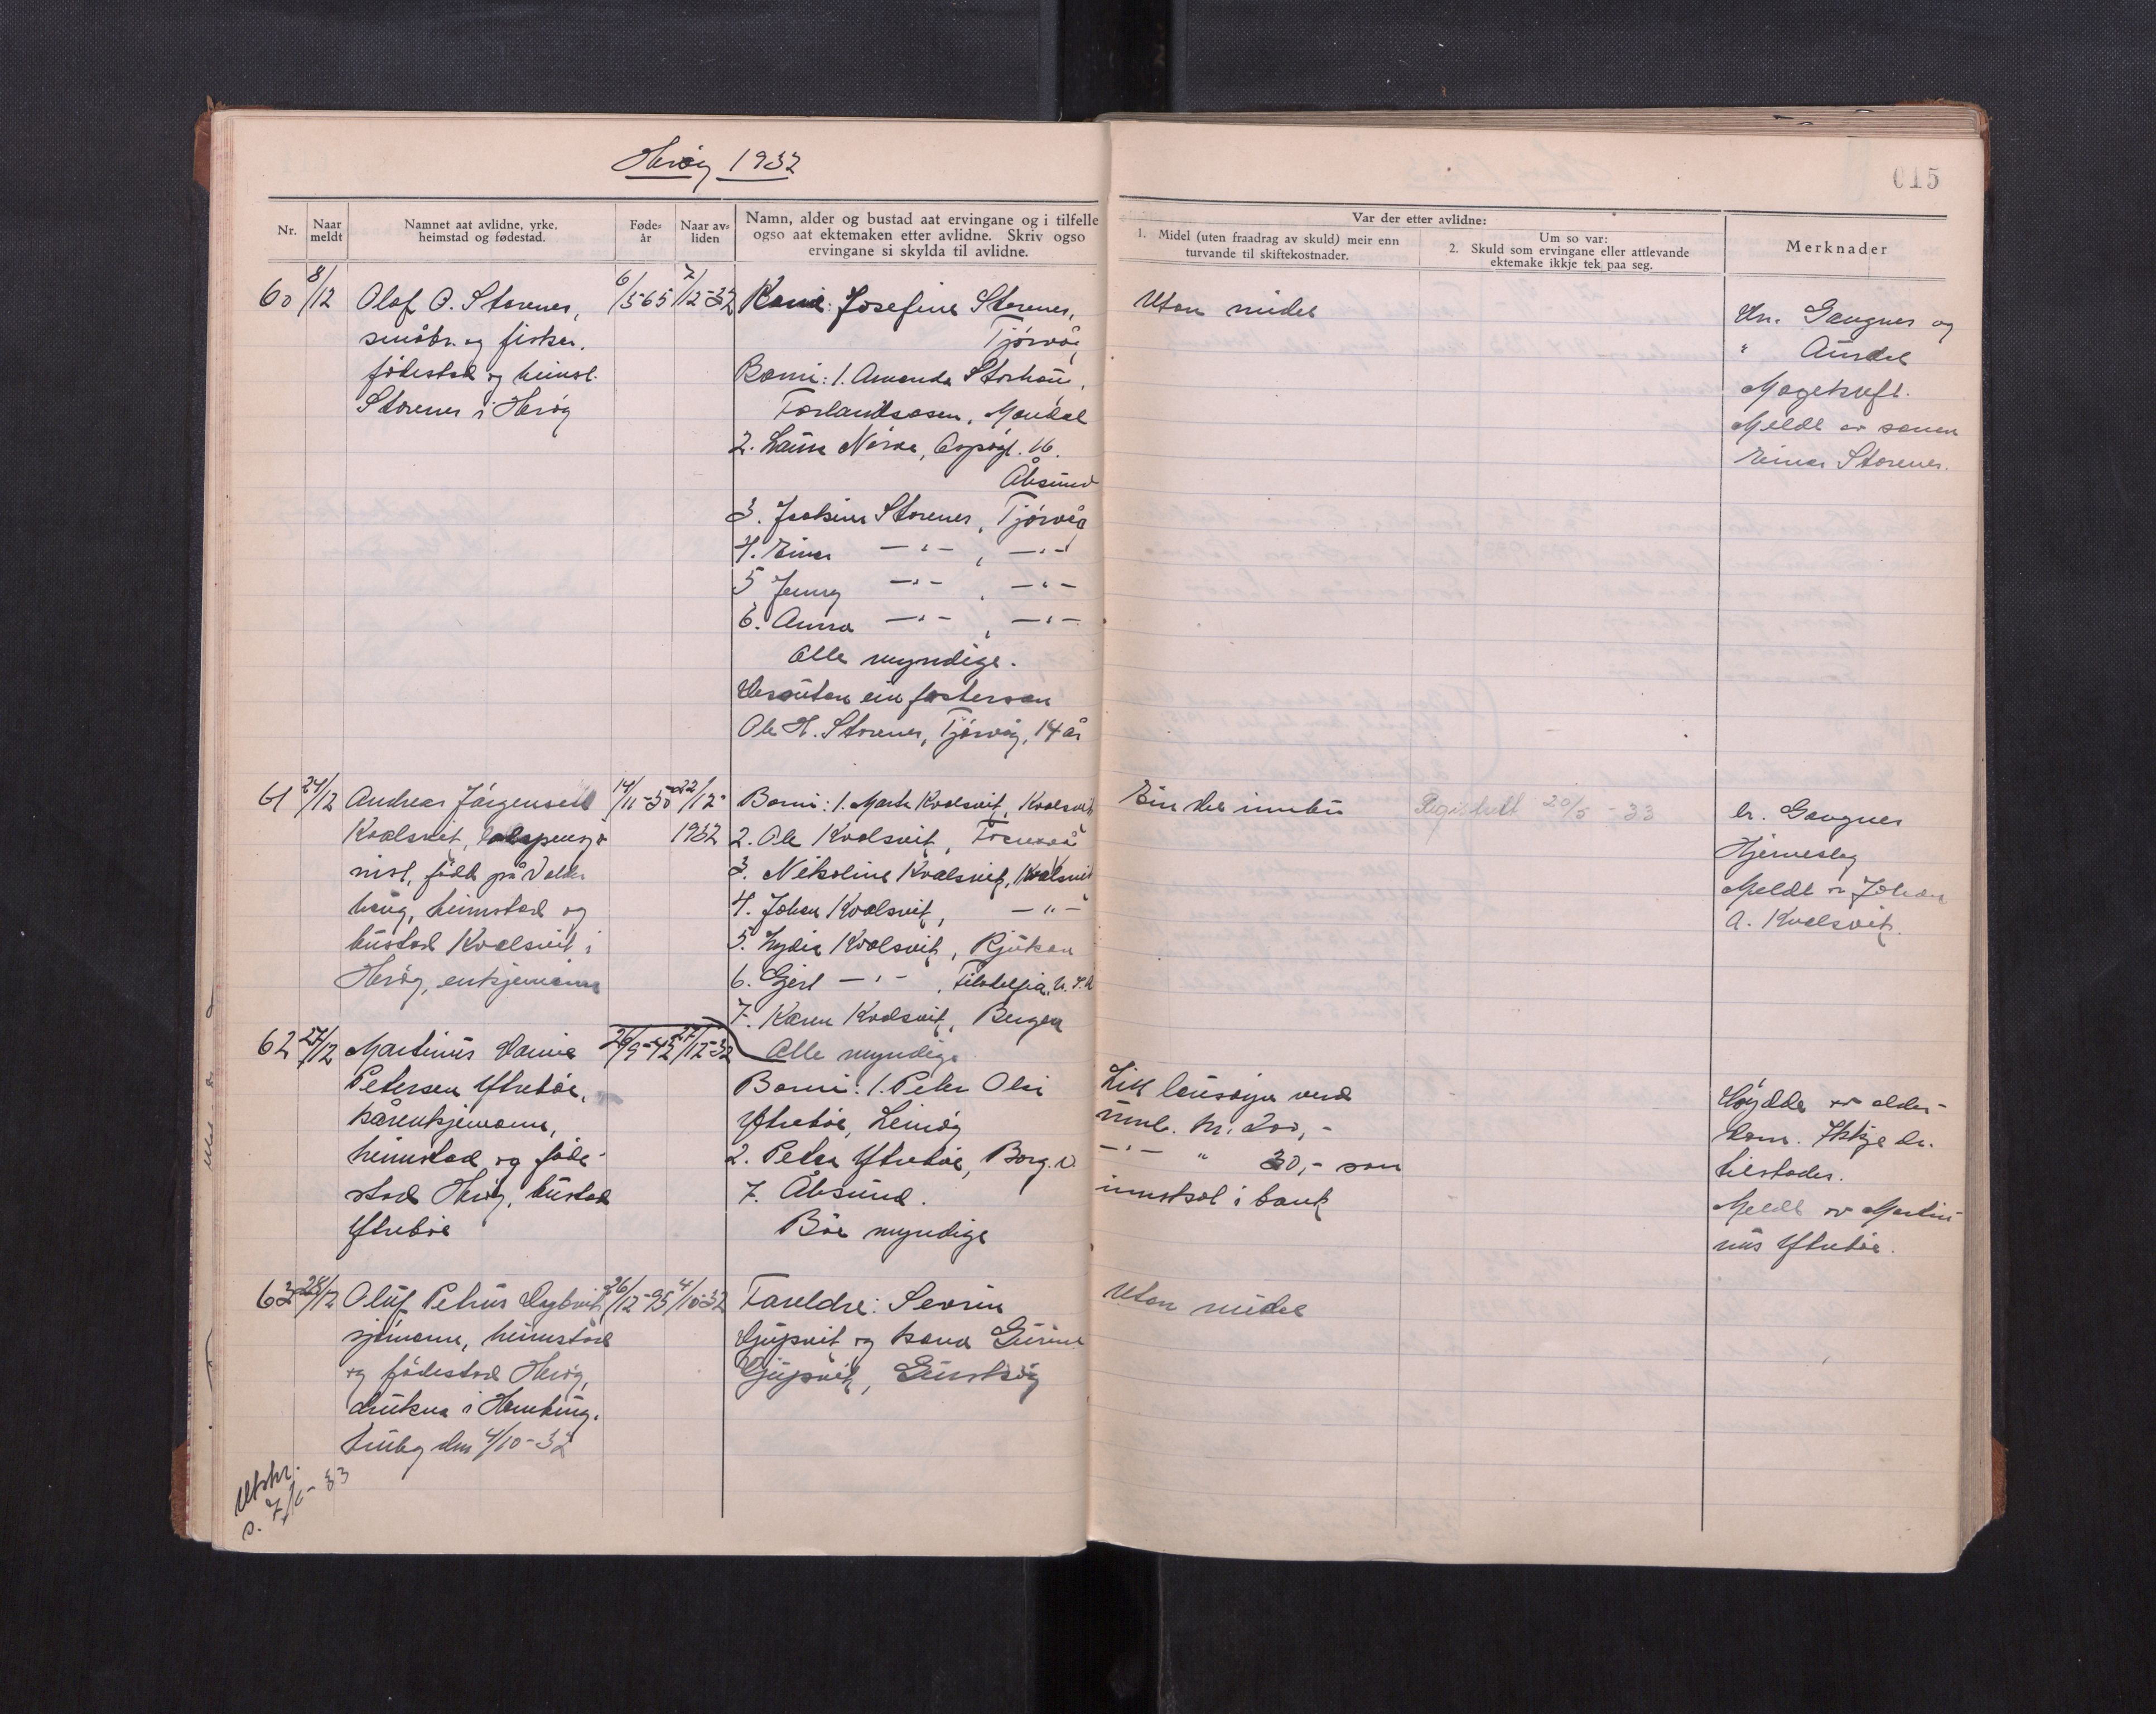 Herøy 1932
015
Nr.
Naar meldt
Namnet aat avlidne, yrke, heimstad og fødestad.
Føde-år
Naar av-liden
Namn, alder og bustad aat ervingane og i tilfelle
ogso aat ektemaken etter avlidne. Skriv ogso
ervingane si skylda til avlidne.
Var der etter avlidne:
1. Midel (uten fraadrag av skuld) meir enn
turvande til skiftekostnader.
Um so var:
2. Skuld som ervingane eller attlevande
ektemake ikkje tek paa seg.
Merknader
60 8/12 Olaf O. Storenes, 6/5-65 7/12-32
småbr. og fisker.
fødestad og heimst.
Storenes i Herøy
Kona: Josefine Storenes,
Tjørvåg
Borni: 1. Amanda
Mandal
2. Nørve, 16.
Ålesund
3. Storenes, Tjørvåg
4. Einar —"— , —"—
5 Jenny —"— , —"—
6. Anna —"— , —"—
Alle myndige.
Desutan ein fosterson
Ole H. Storenes, Tjørvåg, 14 år
Utan midel
Dr. Gangnes og
" Aursdal
Magekreft.
Meldt av sonen
Einar Storenes.
61 24/12 Andreas Jørgensen 14/11-50 22/12-
1932
Kvalsvik,
nist, født på
haug, heimstad og
bustad Kvalsvik i
Herøy, enkjemann
Borni: 1. Kvalsvik, Kvalsvik
2. Ole Kvalsvik,
3. Nikoline Kvalsvik, Kvalsvik
4. Johan Kvalsvik, —"—
5. Lydia Kvalsvik, Rjukan
6. Gjert —"— , Filadelfia, U.S.A
7. Karen Kvalsvik, Bergen
Alle myndige
Ein del innbu
Registrert 20/5-33
Dr. Gangnes
Hjerneslag
Meldt av Johan
A. Kvalsvik.
62 27/12 Martinus 26/9-42 27/12-32
Petersen Ytrebøe,
kårenkjemann,
heimstad og føde-
stad Herøy, bustad
Ytrebøe
Borni: 1. Peter
Ytrebøe, Leinøy
2. Ytrebøe,
7. Ålesund.
Båe myndige
Litt lausøyre verd
uml. kr. 200,-
—"— " 30,- som
innskot i bank
Døydde av alder-
dom. Ikkje dr.
tilstades.
Meldt av Marti-
nus Ytrebøe.
63 28/12 Oluf Petrus 26/12-95 4/10-32
sjømann, heimstad
og fødestad Herøy,
drukna i Hamburg.
den 4/10-32
Foreldre: Severin
Djupvik og kona Gurine
Djupvik, Gurskøy
Utan midel
Utskr.
s. 7/6-33